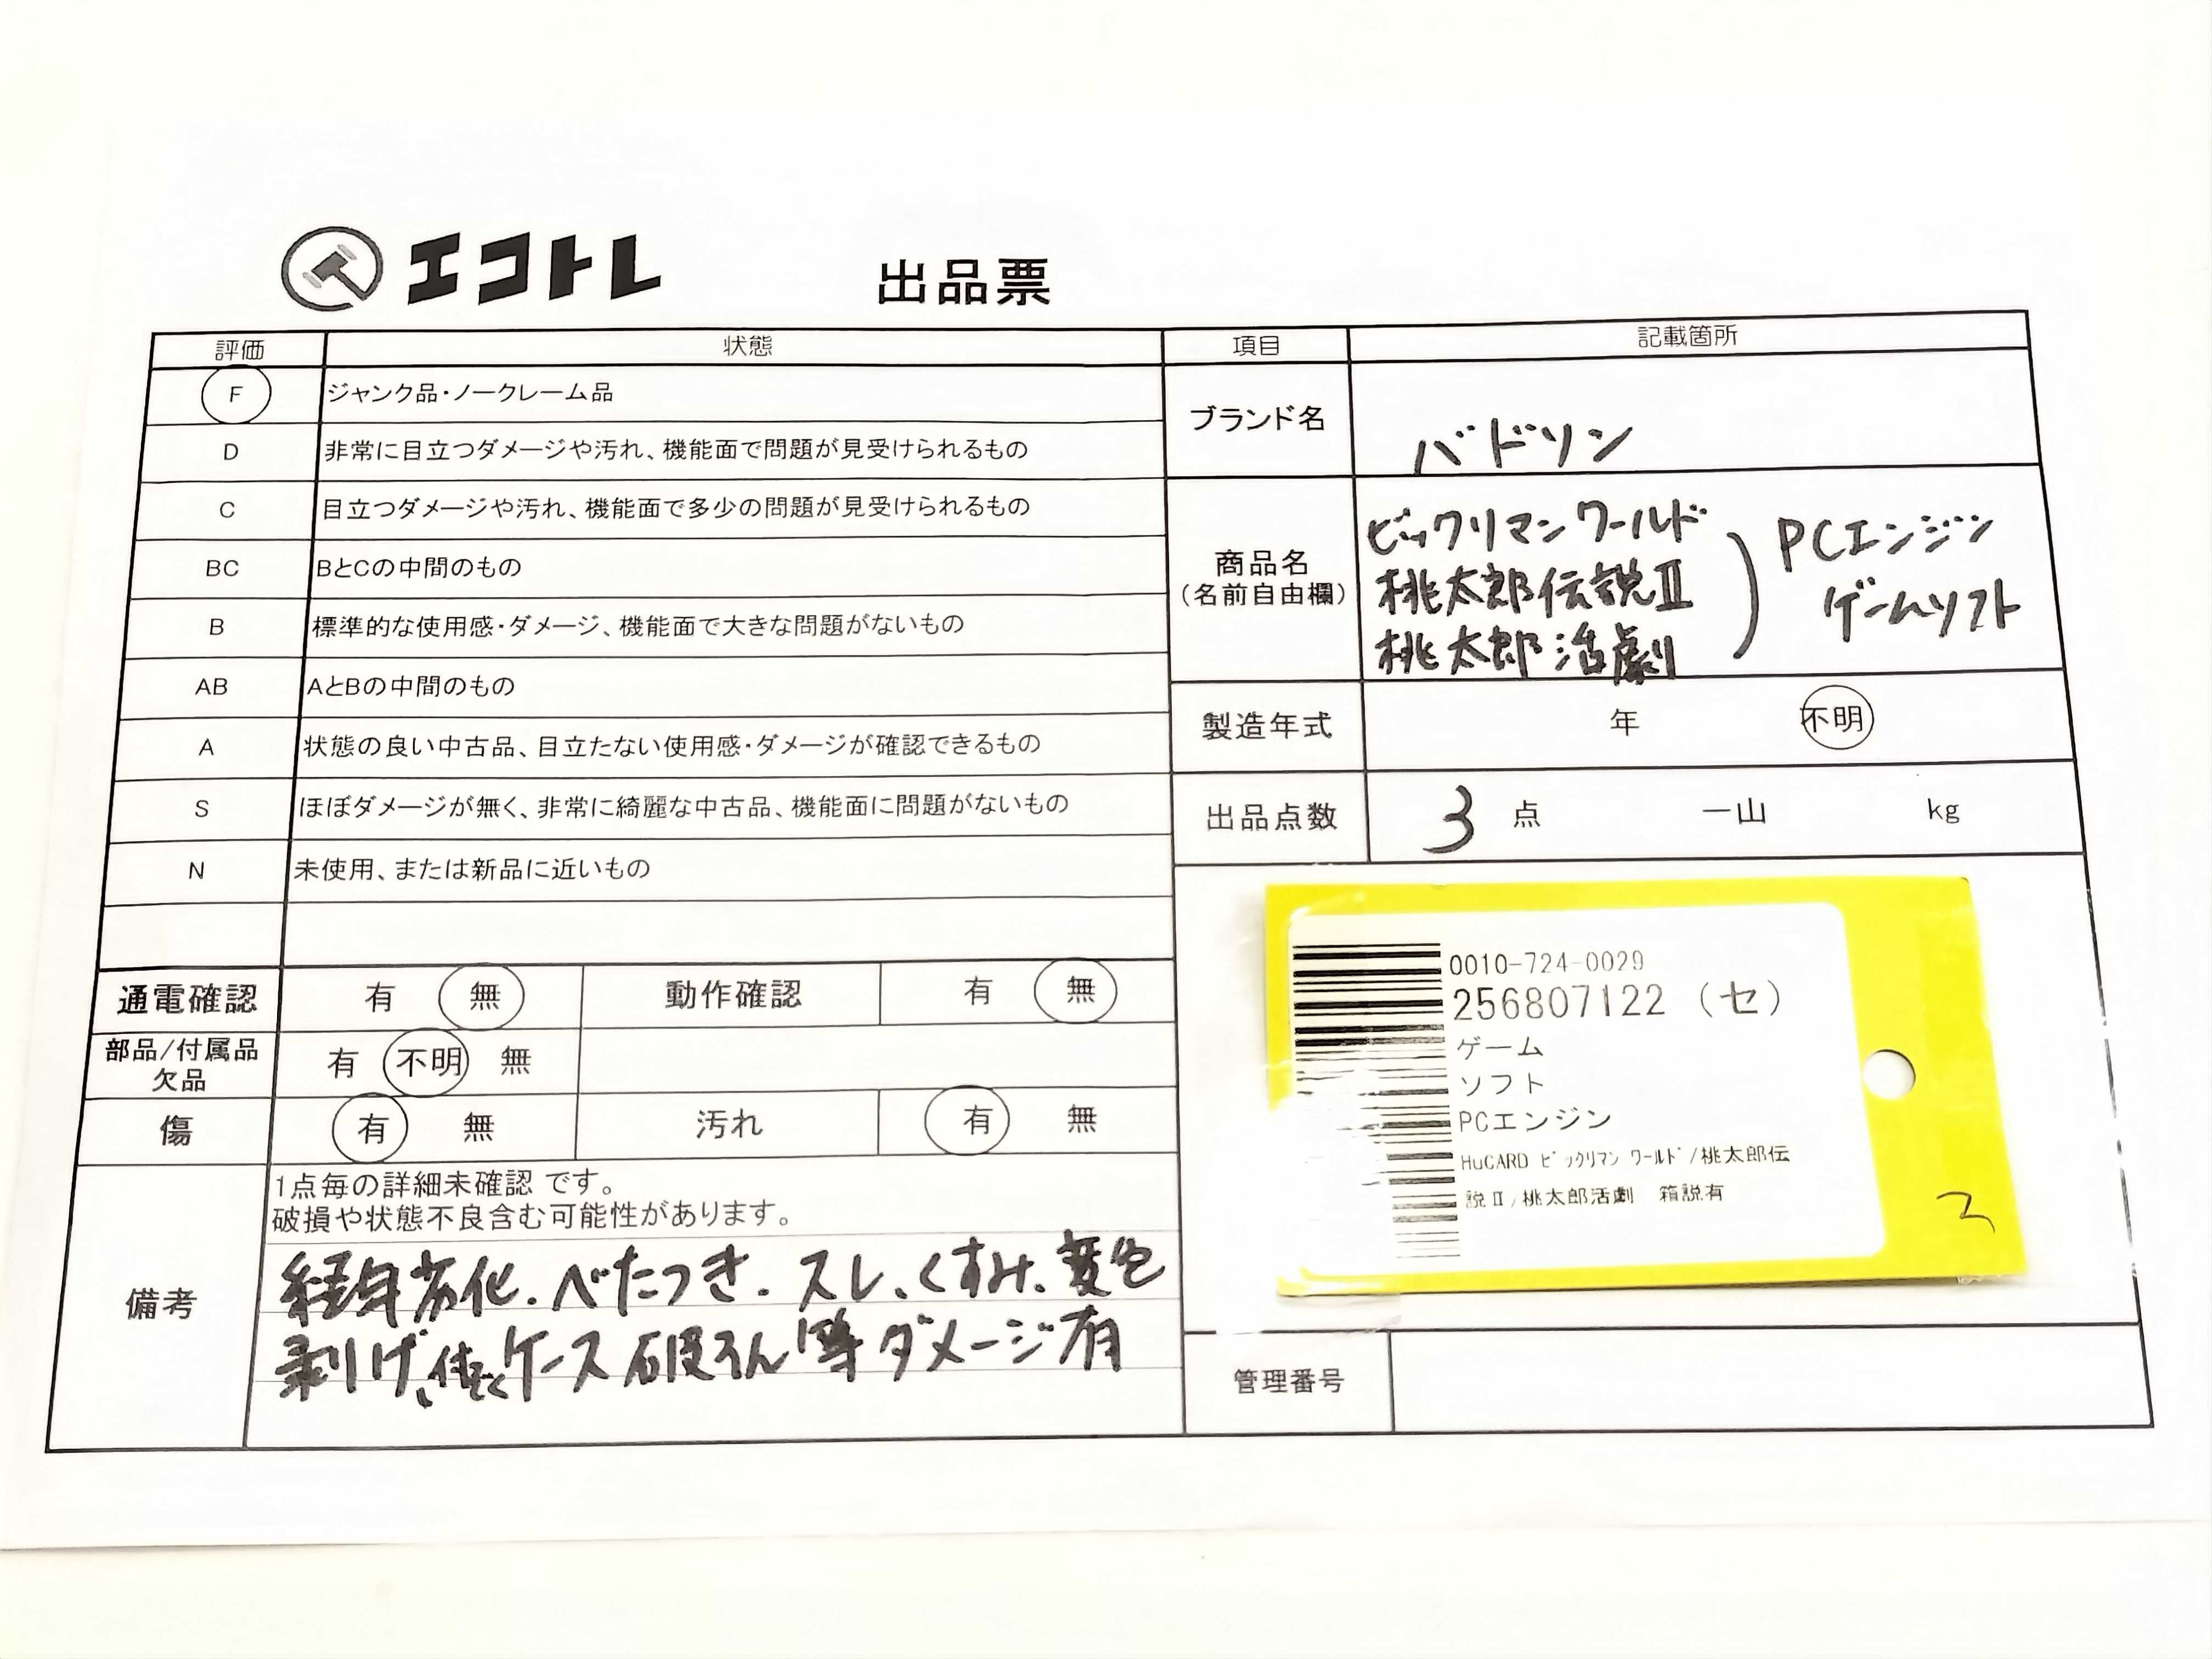 エコトレ
出品票
評価 状態
F ジャンク品・ノークレーム品
D 非常に目立つダメージや汚れ、機能面で問題が見受けられるもの
C 目立つダメージや汚れ、機能面で多少の問題が見受けられるもの
BC BとCの中間のもの
B 標準的な使用感・ダメージ、機能面で大きな問題がないもの
AB AとBの中間のもの
A 状態の良い中古品、目立たない使用感・ダメージが確認できるもの
S ほぼダメージが無く、非常に綺麗な中古品、機能面に問題がないもの
N 未使用、または新品に近いもの
通電確認 有 無 動作確認 有 無
部品/付属品
欠品
有 不明 無
傷 有 無 汚れ 有 無
備考
1点毎の詳細未確認 です。
破損や状態不良含む可能性があります。
経年劣化、べたつき、スレ、くすみ、変色
剥げ、ケース破そん等ダメージ有
項目 記載箇所
ブランド名 バドソン
商品名
(名前自由欄)
ビックリマンワールド
桃太郎伝説Ⅱ
桃太郎活劇
PCエンジン
ゲームソフト
製造年式 年 不明
出品点数 3 点 一山 kg
0010-724-0029
256807122 (セ)
ゲーム
ソフト
PCエンジン
HuCARD ビックリマン ワールド/桃太郎伝
説Ⅱ/桃太郎活劇 箱説有
管理番号